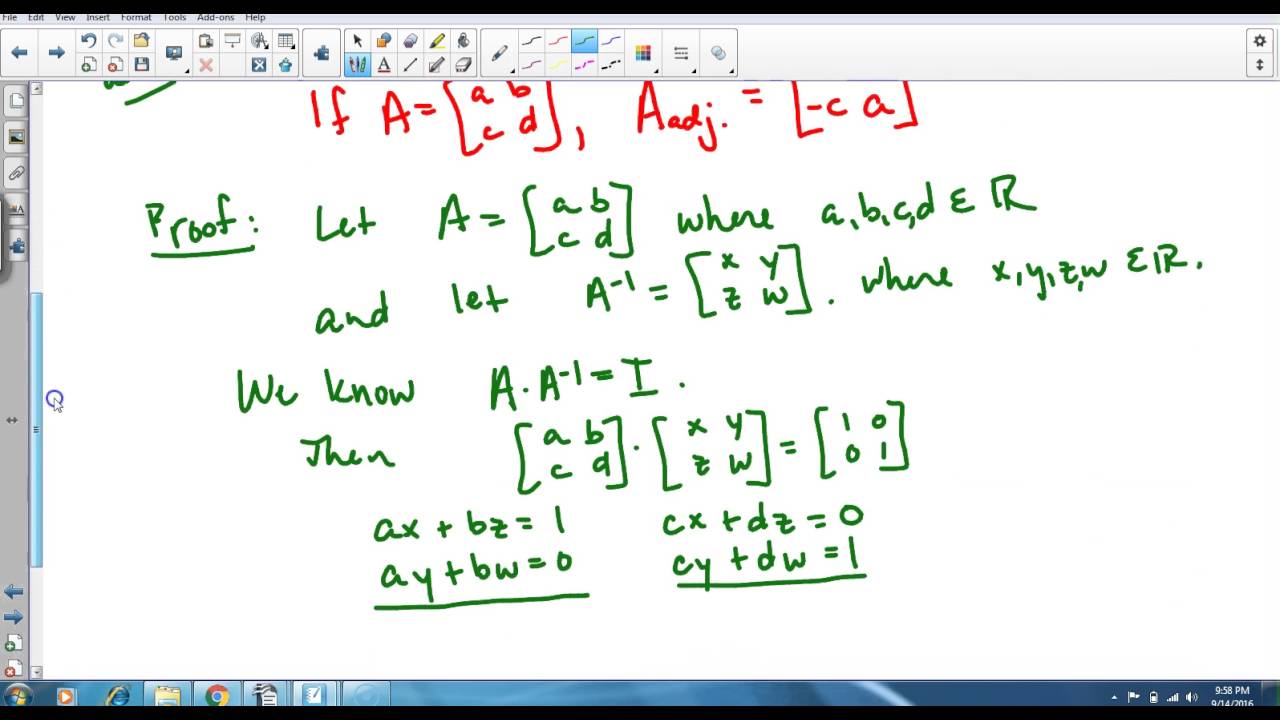 File Edit View Insert Format Tools Add-ons Help
If A = [a b
c d], A adj. = [-c a]
Proof: Let A = [a b
c d] where a,b,c,d ε ℝ
and let A⁻¹ = [x y
z w]. where x,y,z,w ε ℝ.
We know A · A⁻¹ = I.
Then [a b
c d] · [x y
z w] = [1 0
0 1]
ax + bz = 1 cx + dz = 0
ay + bw = 0 cy + dw = 1
9:58 PM
9/14/2016